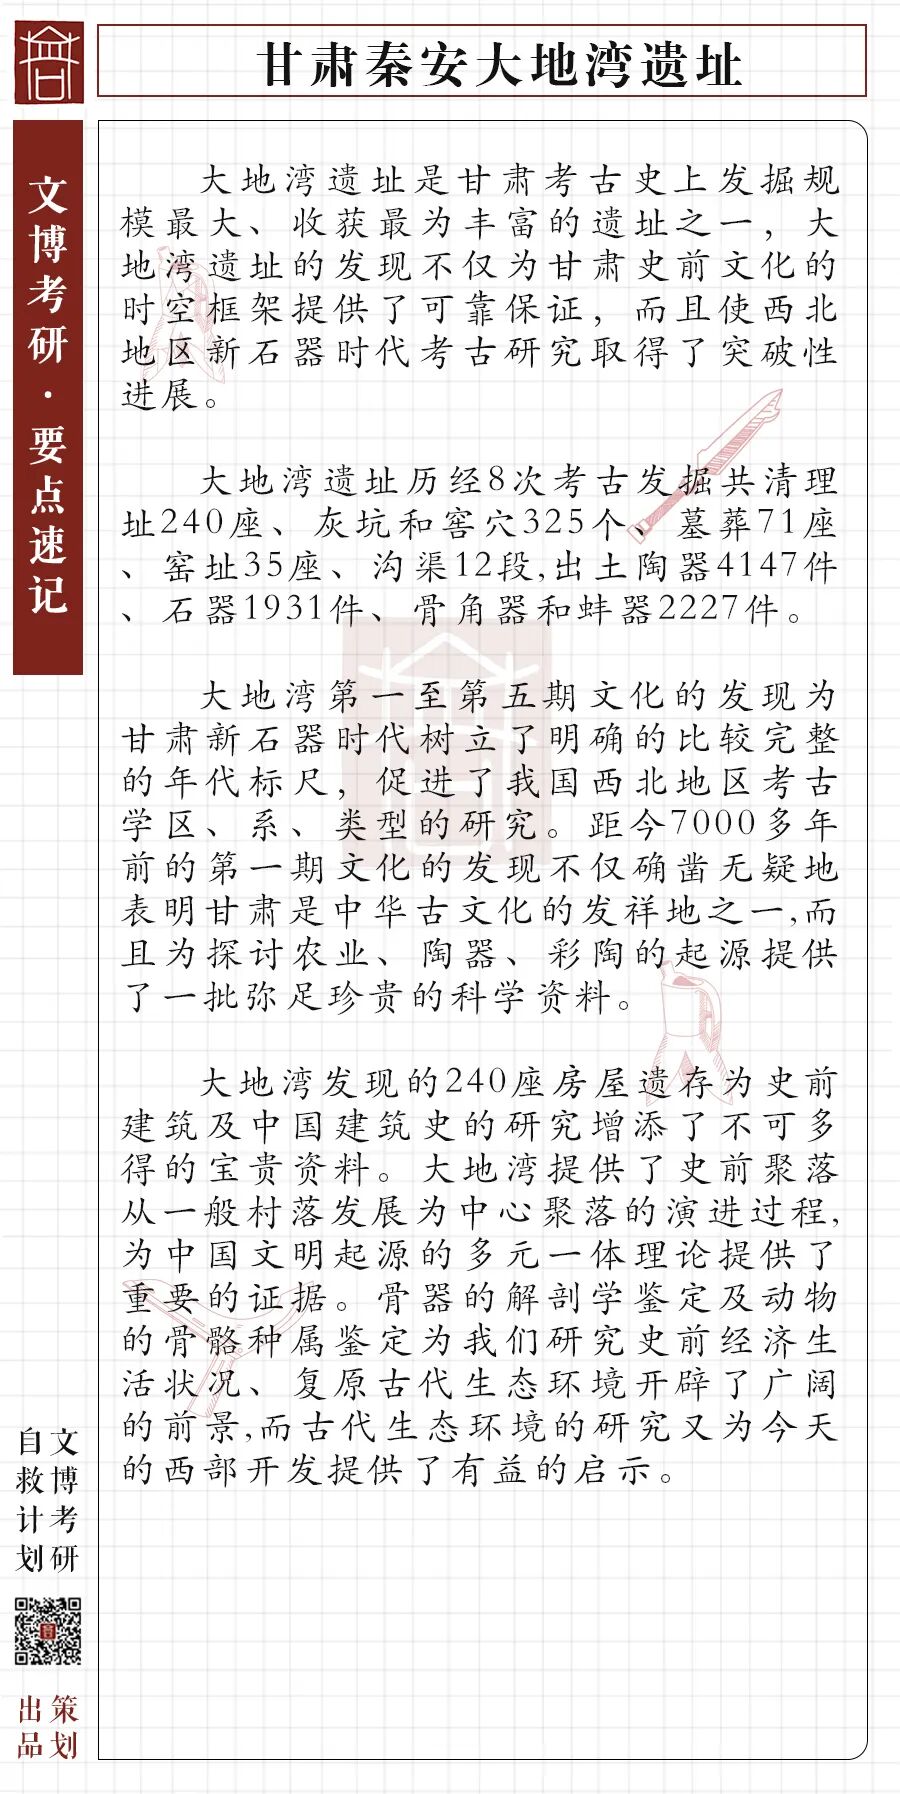 甘肃秦安大地湾遗址
文博考研·要点速记
大地湾遗址是甘肃考古史上发掘规
模最大、收获最为丰富的遗址之一，大
地湾遗址的发现不仅为甘肃史前文化的
时空框架提供了可靠保证，而且使西北
地区新石器时代考古研究取得了突破性
进展。
大地湾遗址历经8次考古发掘共清理
址240座、灰坑和窖穴325个、墓葬71座
、窑址35座、沟渠12段,出土陶器4147件
、石器1931件、骨角器和蚌器2227件。
大地湾第一至第五期文化的发现为
甘肃新石器时代树立了明确的比较完整
的年代标尺，促进了我国西北地区考古
学区、系、类型的研究。距今7000多年
前的第一期文化的发现不仅确凿无疑地
表明甘肃是中华古文化的发祥地之一,而
且为探讨农业、陶器、彩陶的起源提供
了一批弥足珍贵的科学资料。
大地湾发现的240座房屋遗存为史前
建筑及中国建筑史的研究增添了不可多
得的宝贵资料。大地湾提供了史前聚落
从一般村落发展为中心聚落的演进过程,
为中国文明起源的多元一体理论提供了
重要的证据。骨器的解剖学鉴定及动物
的骨骼种属鉴定为我们研究史前经济生
活状况、复原古代生态环境开辟了广阔
的前景,而古代生态环境的研究又为今天
的西部开发提供了有益的启示。
文博考研
自救计划
策划
出品